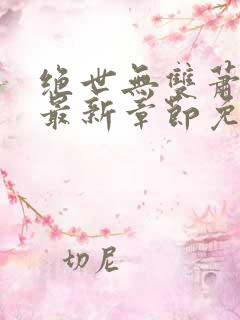 绝世無雙蕭
最新章節免
切尼